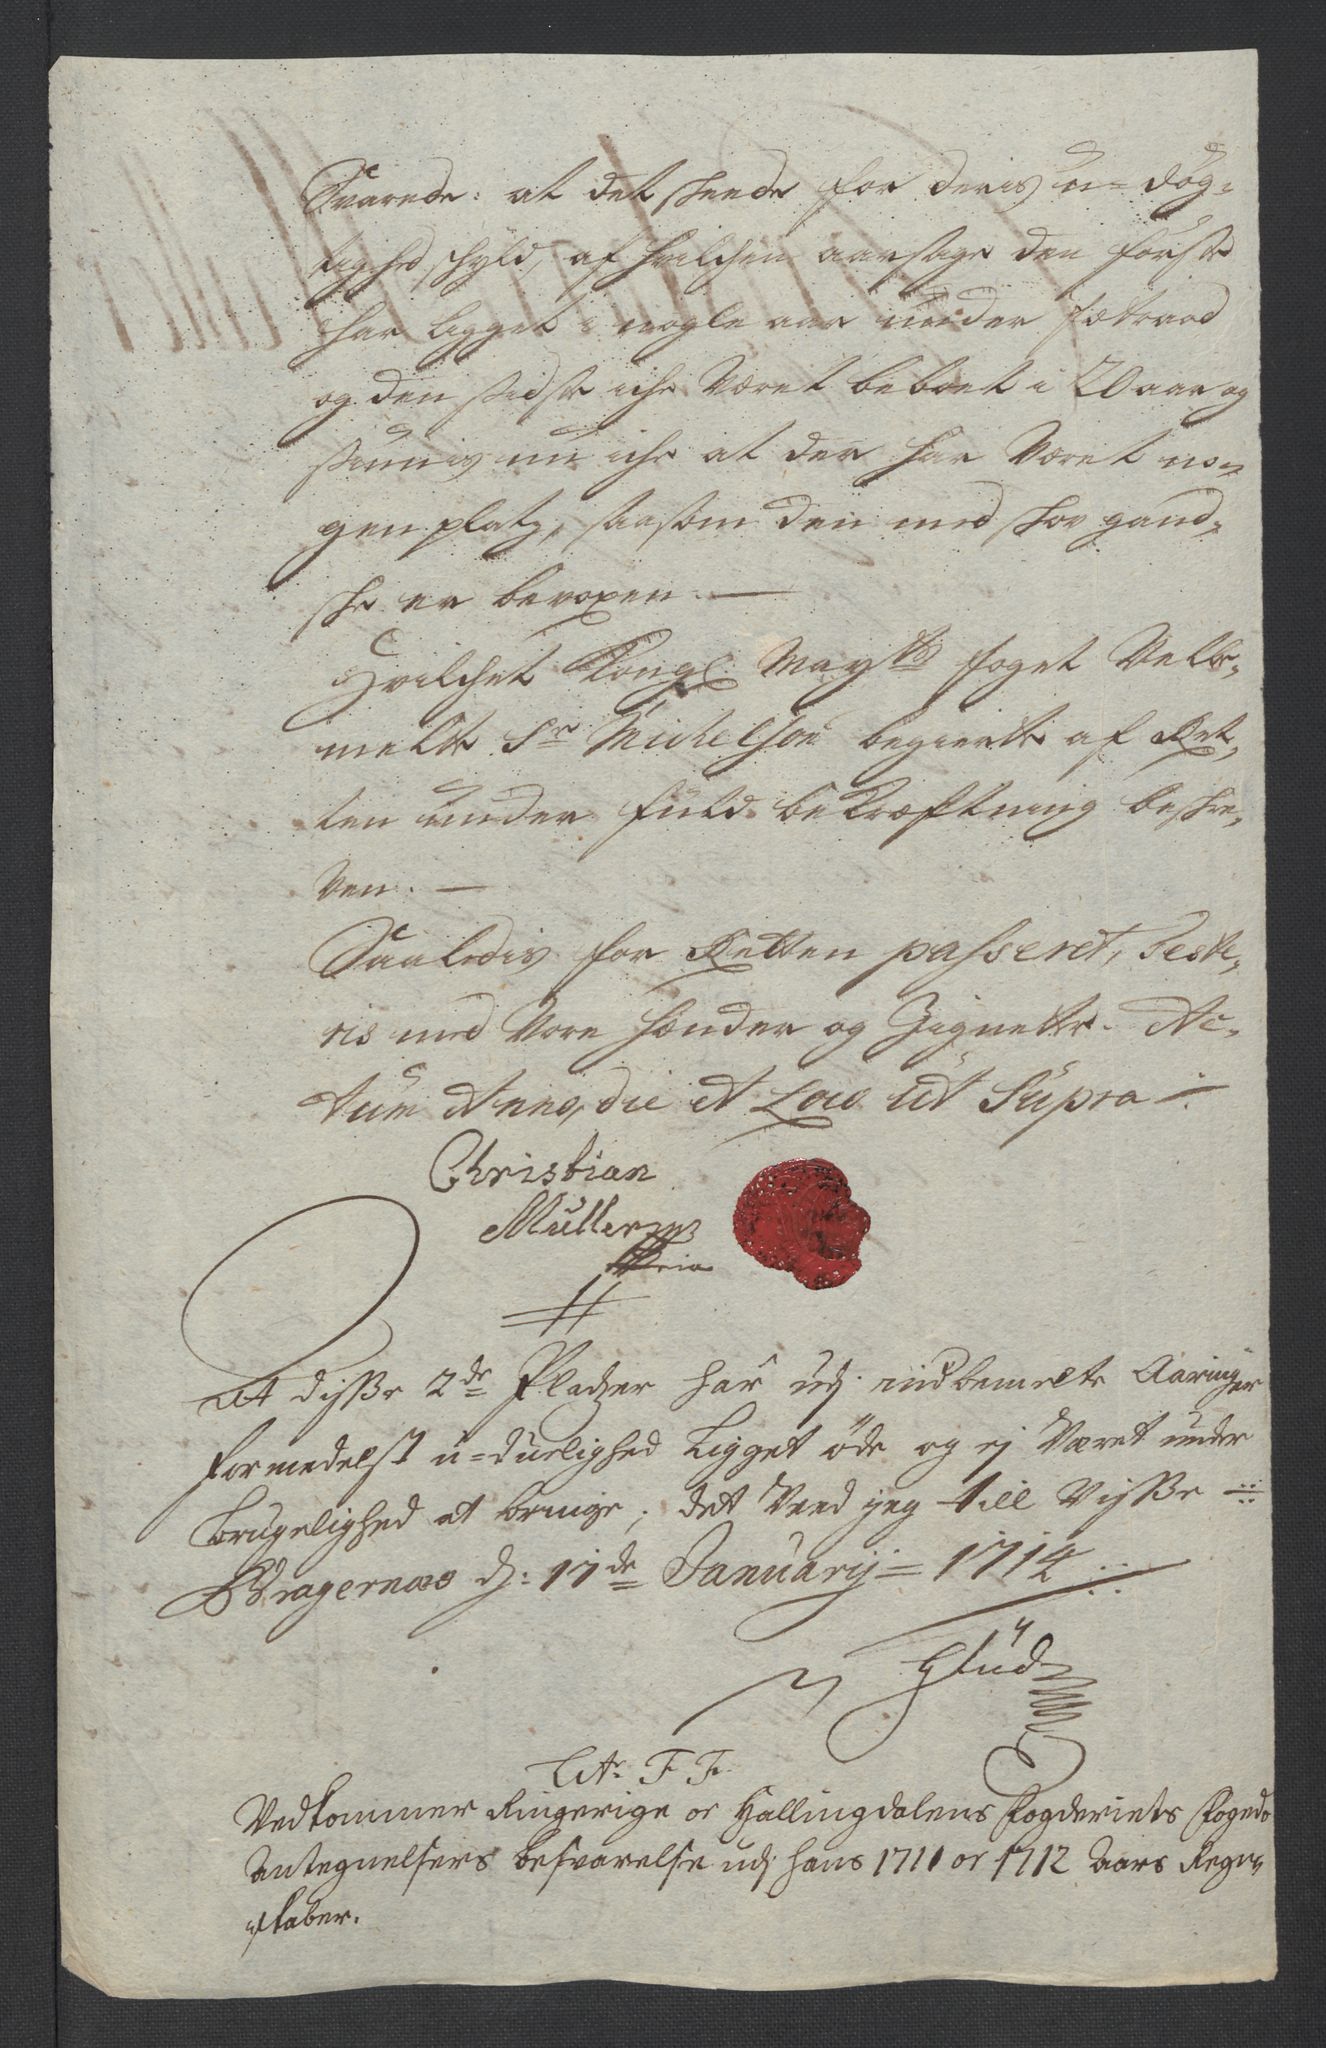 Svarede: at det skeede for deris u-døg-
tighed skyld, af hvilchen aarsage den første
har ligget i nogle aar under fætraad
og den sidste iche været beboet i 20 aar og
siunis nu iche at der har været no-
gen platz, saasom den med skov gand-
ske er beroxen. —
Hvilchet Kongl. Mayts foget Velbe-
melte Sr Michelsøn begierte af Ret-
ten under fuld bekræftning beskre-
ven. —
Saaledis for Retten passeret, Teste-
ris med Vore hænder og Zignetter. Ac-
tum Anno, die et Loco ut Supra
Christian
Muller
At disse 2de Pladzer har udj indbemelte Aaringer
formedelst u-duelighed Ligget øde og ej Været under
brugelighed at bringe; det Veed jeg till Visse
Bragernæs d: 17de Januarij 1714
Glud
Litr. F F.
Vedkommer Ringerige oc Hallingdalens fogderiets fogeds
Antegnelsers besvarelse udj hans 1711 oc 1712 Aars Regn-
skaber.